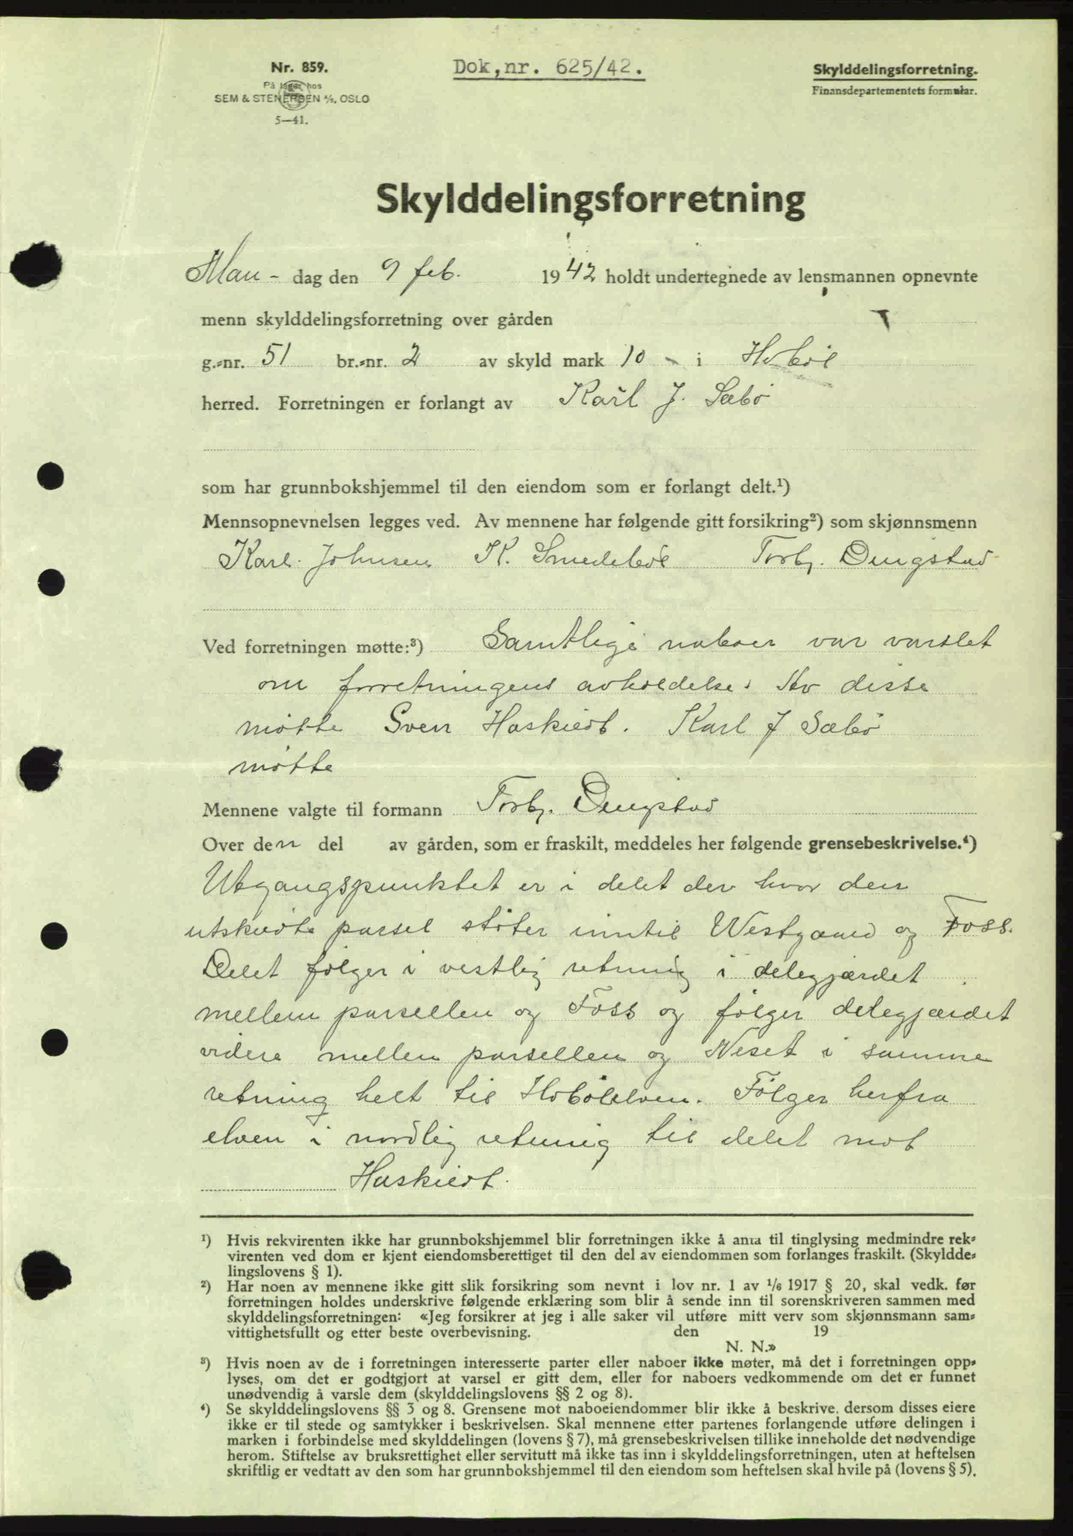 Nr. 859.
På lager hos
SEM & STENERSEN A/S, OSLO
5—41.
Dok,nr. 625/42.
Skylddelingsforretning.
Finansdepartementets formular.
Skylddelingsforretning
Man - dag den 9 feb. 1942 holdt undertegnede av lensmannen opnevnte
menn skylddelingsforretning over gården
g.-nr. 51 br.-nr. 2 av skyld mark 10 - i Hobøl
herred. Forretningen er forlangt av Karl J. Sæbø
som har grunnbokshjemmel til den eiendom som er forlangt delt.¹)
Mennsopnevnelsen legges ved. Av mennene har følgende gitt forsikring²) som skjønnsmenn
Karl Johnsen K. Smedsbøl Torbj. Dingstad
Ved forretningen møtte:³) Samtlige naboer var varslet
om forretningens avholdelse. Av disse
møtte Sven Haskiedt. Karl J Sæbø
møtte
Mennene valgte til formann Torbj. Dingstad
Over den del av gården, som er fraskilt, meddeles her følgende grensebeskrivelse.⁴)
Utgangspunktet er i delet der hvor den
utskildte parsel støter inntil Westgaard og Foss.
Delet følger i vestlig retning i delegjærdet
mellem parsellen og Foss og følger delegjærdet
videre mellem parsellen og Neset i samme
retning helt til Hobølelven. Følger herfra
elven i nordlig retning til delet mot
Haskiedt.
¹) Hvis rekvirenten ikke har grunnbokshjemmel blir forretningen ikke å anta til tinglysing medmindre rek-
virenten ved dom er kjent eiendomsberettiget til den del av eiendommen som forlanges fraskilt. (Skyldde-
lingslovens § 1).
²) Har noen av mennene ikke gitt slik forsikring som nevnt i lov nr. 1 av ¹/₆ 1917 § 20, skal vedk. før
forretningen holdes underskrive følgende erklæring som blir å sende inn til sorenskriveren sammen med
skylddelingsforretningen: «Jeg forsikrer at jeg i alle saker vil utføre mitt verv som skjønnsmann sam-
vittighetsfullt og etter beste overbevisning. den 19
N. N.»
³) Hvis noen av de i forretningen interesserte parter eller naboer ikke møter, må det i forretningen opp-
lyses, om det er godtgjort at varsel er gitt dem, eller for naboers vedkommende om det er funnet
unødvendig å varsle dem (skylddelingslovens §§ 2 og 8).
⁴) Se skylddelingslovens §§ 3 og 8. Grensene mot naboeiendommer blir ikke å beskrive, dersom disses eiere
ikke er til stede og samtykker i beskrivelsen. Skal mennene etter partenes forlangende utføre delingen i
marken i forbindelse med skylddelingen (lovens § 7), må grensebeskrivelsen tillike inneholde det nødvendige
herom. Stiftelse av bruksrettighet eller servitutt må ikke tas inn i skylddelingsforretningen, uten at heftelsen
skriftlig er vedtatt av den som har grunnbokshjemmel til den eiendom som heftelsen skal hvile på (lovens § 5).